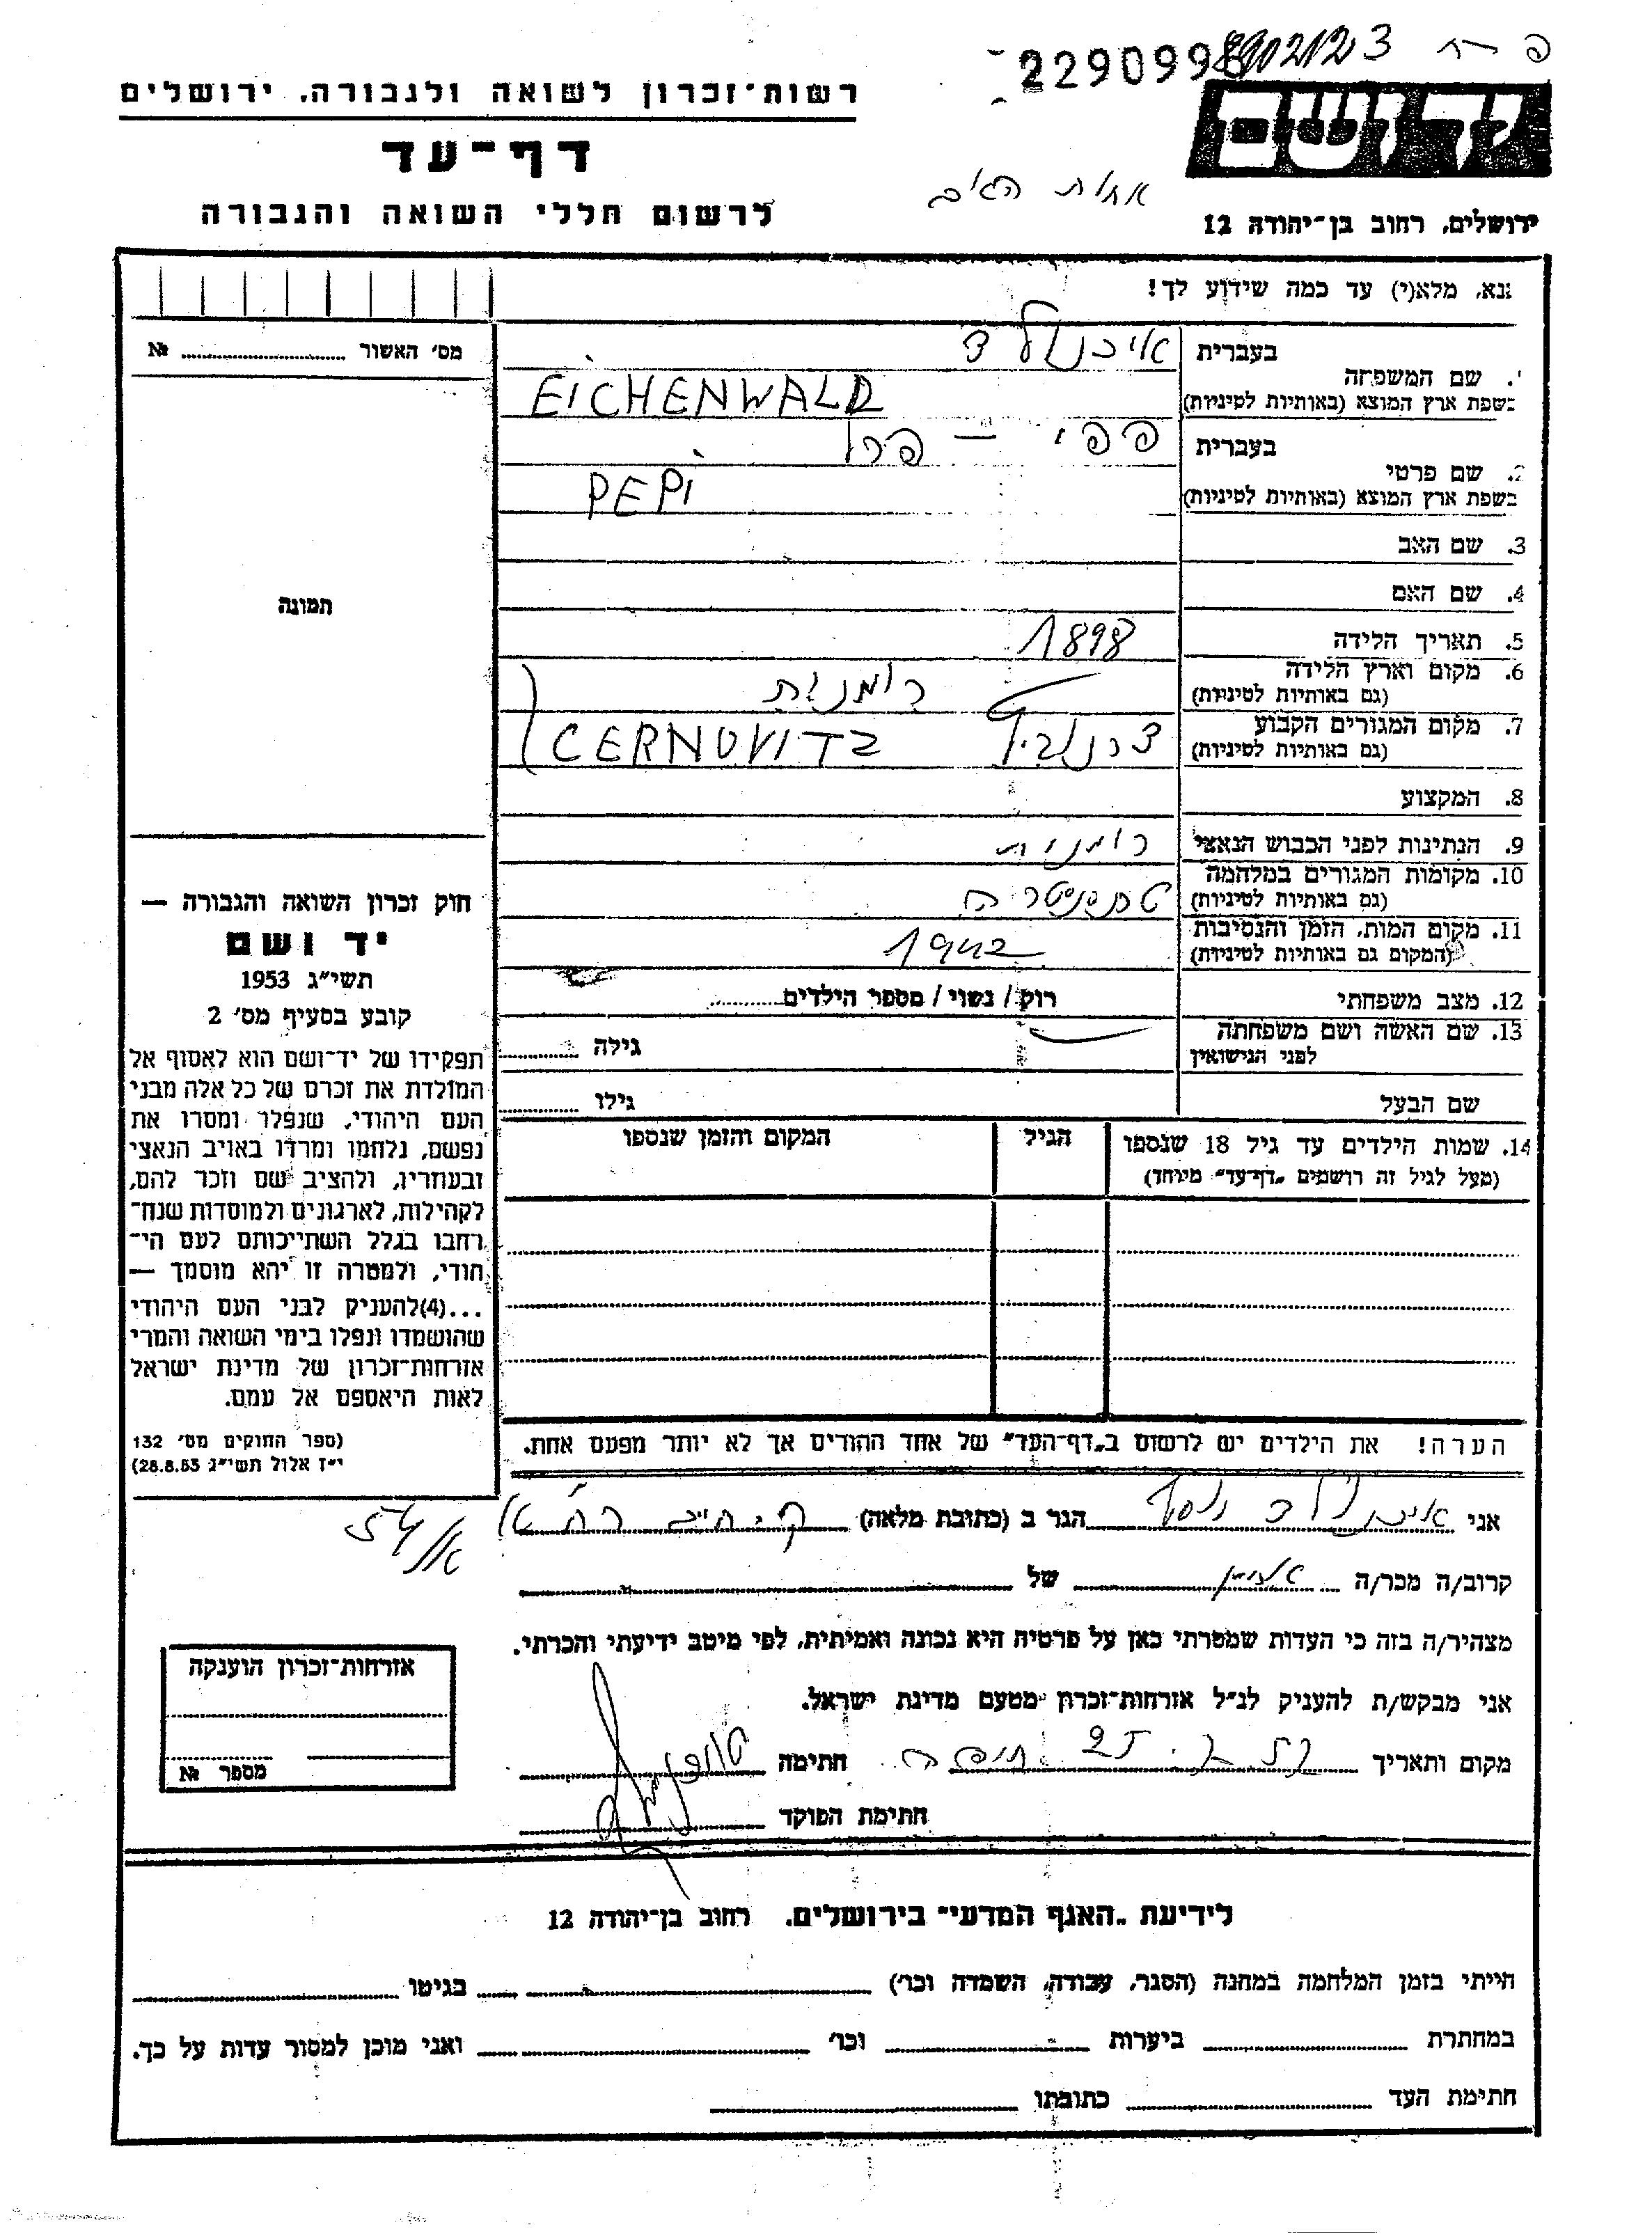 2290998
רשות-זכרון לשואה ולגבורה, ירושלים
דף-עד
לרשום חללי השואה והגבורה
יד ושם
ירושלים, רחוב בן-יהודה 12
נא, מלא(י) עד כמה שידוע לך!
מס' האשור № 
שם המשפחה
בעברית איכנולד
בשפת ארץ המוצא (באותיות לטיניות) EICHENWALD
2. שם פרטי
בעברית פפי –
בשפת ארץ המוצא (באותיות לטיניות) PEPI
3. שם האב
4. שם האם
תמונה
5. תאריך הלידה 1898
6. מקום וארץ הלידה רומניה
(גם באותיות לטיניות)
7. מקום המגורים הקבוע
(גם באותיות לטיניות) CERNOVITZ
8. המקצוע
9. הנתינות לפני הכבוש הנאצי רומנית
10. מקומות המגורים במלחמה
(גם באותיות לטיניות)
11. מקום המות, הזמן והנסיבות 1942
(המקום גם באותיות לטיניות)
12. מצב משפחתי רוק / נשוי / מספר הילדים
13. שם האשה ושם משפחתה גילה
לפני הנישואין
שם הבעל גילו
14. שמות הילדים עד גיל 18 שנספו הגיל המקום והזמן שנספו
(מעל לגיל זה רושמים "דף-עד" מיוחד)
הערה! את הילדים יש לרשום ב"דף-העד" של אחד ההורים אך לא יותר מפעם אחת.
חוק זכרון השואה והגבורה —
יד ושם
תשי"ג 1953
קובע בסעיף מס' 2
תפקידו של יד-ושם הוא לאסוף אל
המולדת את זכרם של כל אלה מבני
העם היהודי, שנפלו ומסרו את
נפשם, נלחמו ומרדו באויב הנאצי
ובעוזריו, ולהציב שם וזכר להם,
לקהילות, לארגונים ולמוסדות שנח-
רחבו בגלל השתייכותם לעם הי-
הודי, ולמטרה זו יהא מוסמך —
...(4)להעניק לבני העם היהודי
שהושמדו ונפלו בימי השואה והמרי
אזרחות-זכרון של מדינת ישראל
לאות היאספם אל עמם.
(ספר החוקים מס' 132
י"ז אלול תשי"ג 28.8.53)
אני הגר ב (כתובת מלאה) ק. חיים
קרוב/ה מכר/ה של
מצהיר/ה בזה כי העדות שמסרתי כאן על פרטיה היא נכונה ואמיתית, לפי מיטב ידיעתי והכרתי.
אני מבקש/ת להעניק לנ"ל אזרחות-זכרון מטעם מדינת ישראל.
מקום ותאריך חיפה חתימה
חתימת הפוקד
אזרחות-זכרון הוענקה
מספר №
לידיעת "האגף המדעי" בירושלים, רחוב בן-יהודה 12
הייתי בזמן המלחמה במחנה (הסגר, עבודה, השמדה וכו') בגיטו
במחתרת ביערות וכו' ואני מוכן למסור עדות על כך.
חתימת העד כתובתו